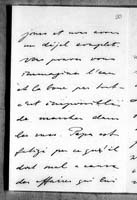 jours et nous avons
un dégel complet.
Vous pouvez vous
imaginer l'eau
et la boue partout
c'est impossible
de marcher dans
les rues. Papa est
fatigué parce qu'il
doit mal à cause
des affaires qui lui